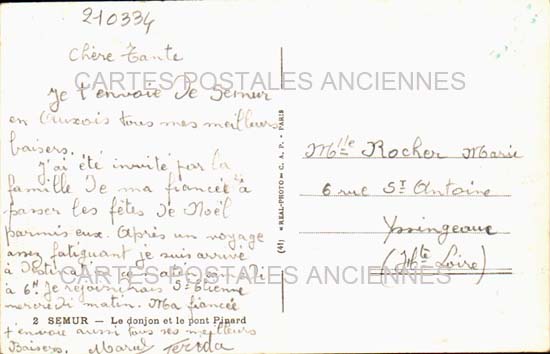 210334
Chère Tante
Je t'envoie de Semur
en Auxois tous mes meilleurs
baisers.
J'ai été invité par la
famille de ma fiancée à
passer les fêtes de Noël
parmis eux. Après un voyage
assez fatiguant je suis arrivé
à destination ce
à 6H. Je rejoindrais St Etienne
mercredi matin. Ma fiancée
t'envoie aussi tous ses meilleurs
Baisers.
2 SEMUR — Le donjon et le pont Pinard
(41) « REAL-PHOTO » C. A. P. - PARIS
Mlle Rocher Marie
6 rue St Antoine
Yssingeaux
(Hte Loire)
CARTES POSTALES ANCIENNES
CARTES POSTALES ANCIENNES